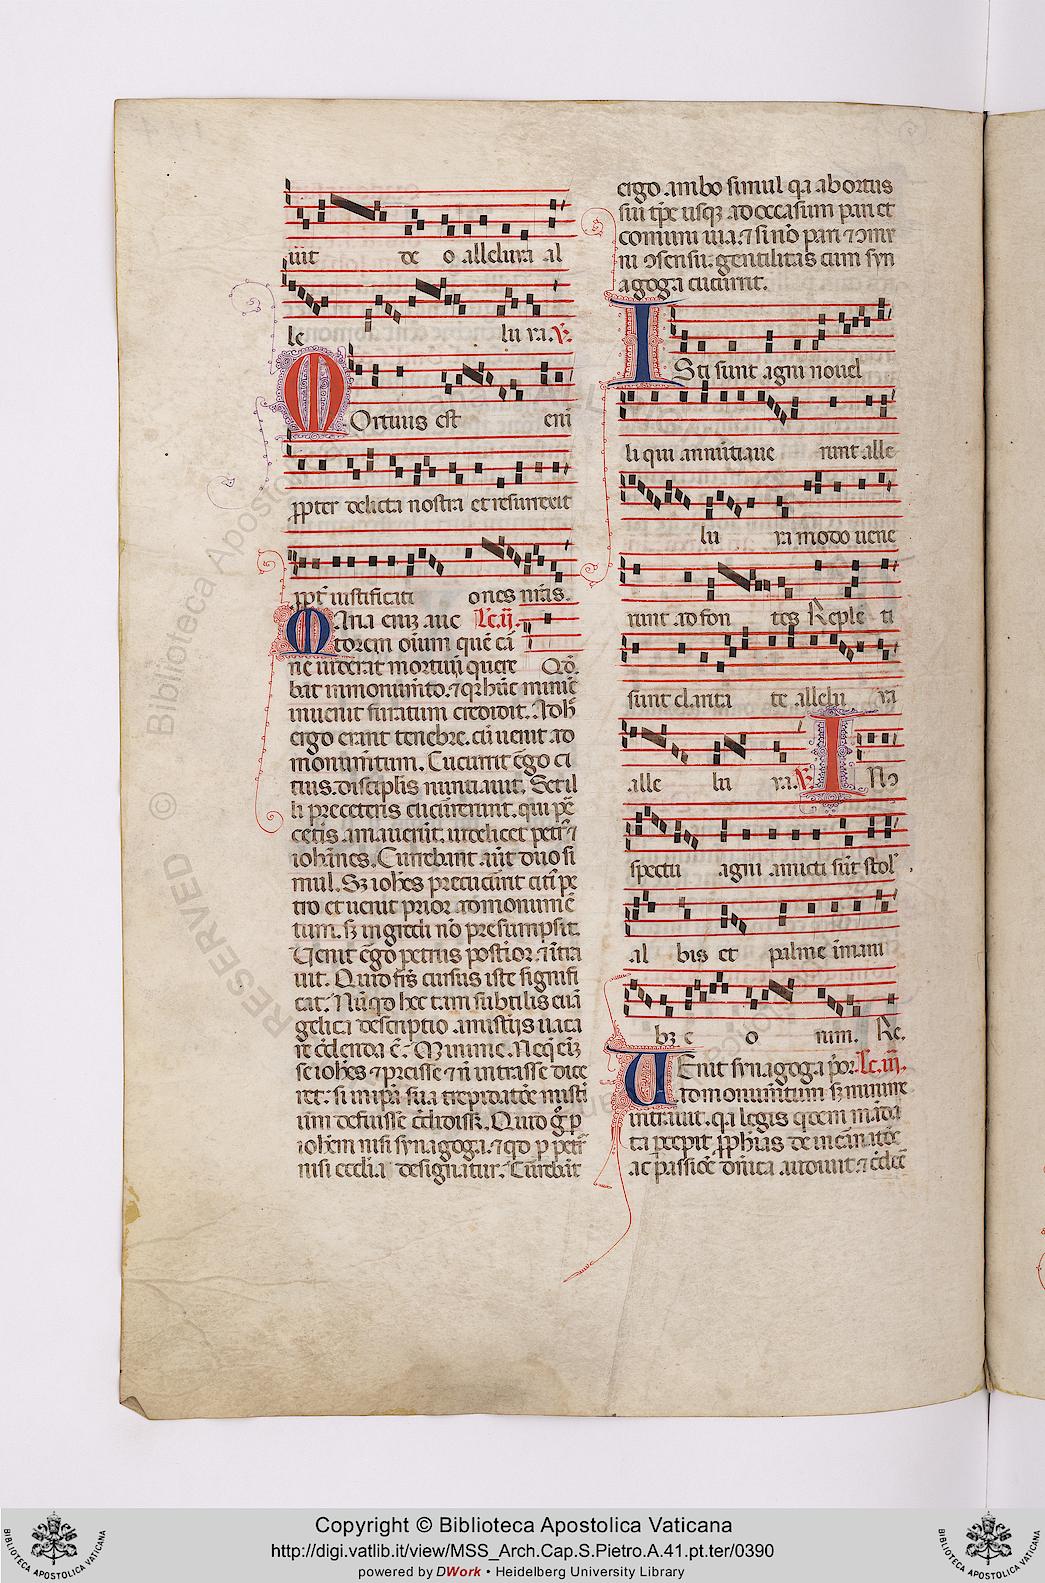 uit de o alleluya al
le lu ya. V.
Ortuus est eni
ppter delicta nostra et resurrexit
ppt iustificati ones nras.
Aria eni3 auc Lc. ij.
torem oium que ci
ne uiderat mortuu quere Qo.
bat in monumto. 7 qr huc minie
inuenit furatum credidit. Adh
ergo erant tenebre. cu uenit ad
monumtum. Cucurrit ergo ci
tius. disciplis nuntiauit. Set il
li pre ceteris cucurrerunt. qui pre
ceteris amauerunt. uidelicet petr 7
iohannes. Currebant aut duo si
mul. S3 iohes precucurrit citi pe
tro et uenit prior ad monume
tum. s3 ingredi no presumpsit.
Uenit ergo petrus posterior. 7 intra
uit. Quid frs cursus iste signifi
cat. Nuqd hec tam subtilis eua
gelica descriptio a misteriis uaca
re credenda e. Minime. Neq eni3
se iohes 7 preisse 7 n intrasse dice
ret. si in ipa sua trepidatoe misteri
um defuisse credidisset. Quid g p
iohem nisi synagoga. 7 qd p petr
nisi ecclia designatur. Currebant
ergo ambo simul qa ab ortus
sui tpe usq3 ad occasum pari et
comuni uia. 7 si no pari 7 comu
ni sensu. gentilitas cum syn
agoga cucurrit.
Sti sunt agni nouel
li qui annuntiaue runt alle
lu ya modo uene
runt ad fon tes Reple ti
sunt clarita te allelu ya
alle lu ya. V. N 9
spectu agni amicti sunt stol
al bis et palme in mani
b3 e o rum. Re.
Enit synagoga por. Lc. iij.
ad monumtum s3 minime
intrauit. qa legis qdem manda
ta pcepit pphias de incarnatoe
ac passioe dnica audiuit. 7 credere
RESERVED © Biblioteca Apostolica
Copyright © Biblioteca Apostolica Vaticana
http://digi.vatlib.it/view/MSS_Arch.Cap.S.Pietro.A.41.pt.ter/0390
powered by DWork • Heidelberg University Library
BIBLIOTECA APOSTOLICA VATICANA
BIBLIOTECA APOSTOLICA VATICANA